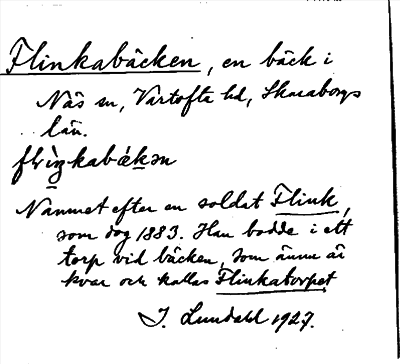 Flinkabäcken, en bäck i
Näs sn, Vartofta hd, Skaraborgs
län.
flìŋkabákən
Namnet efter en soldat Flink,
som dog 1883. Han bodde i ett
torp vid bäcken, som ännu är
kvar och kallas Flinkatorpet
J. Lundahl 1927.